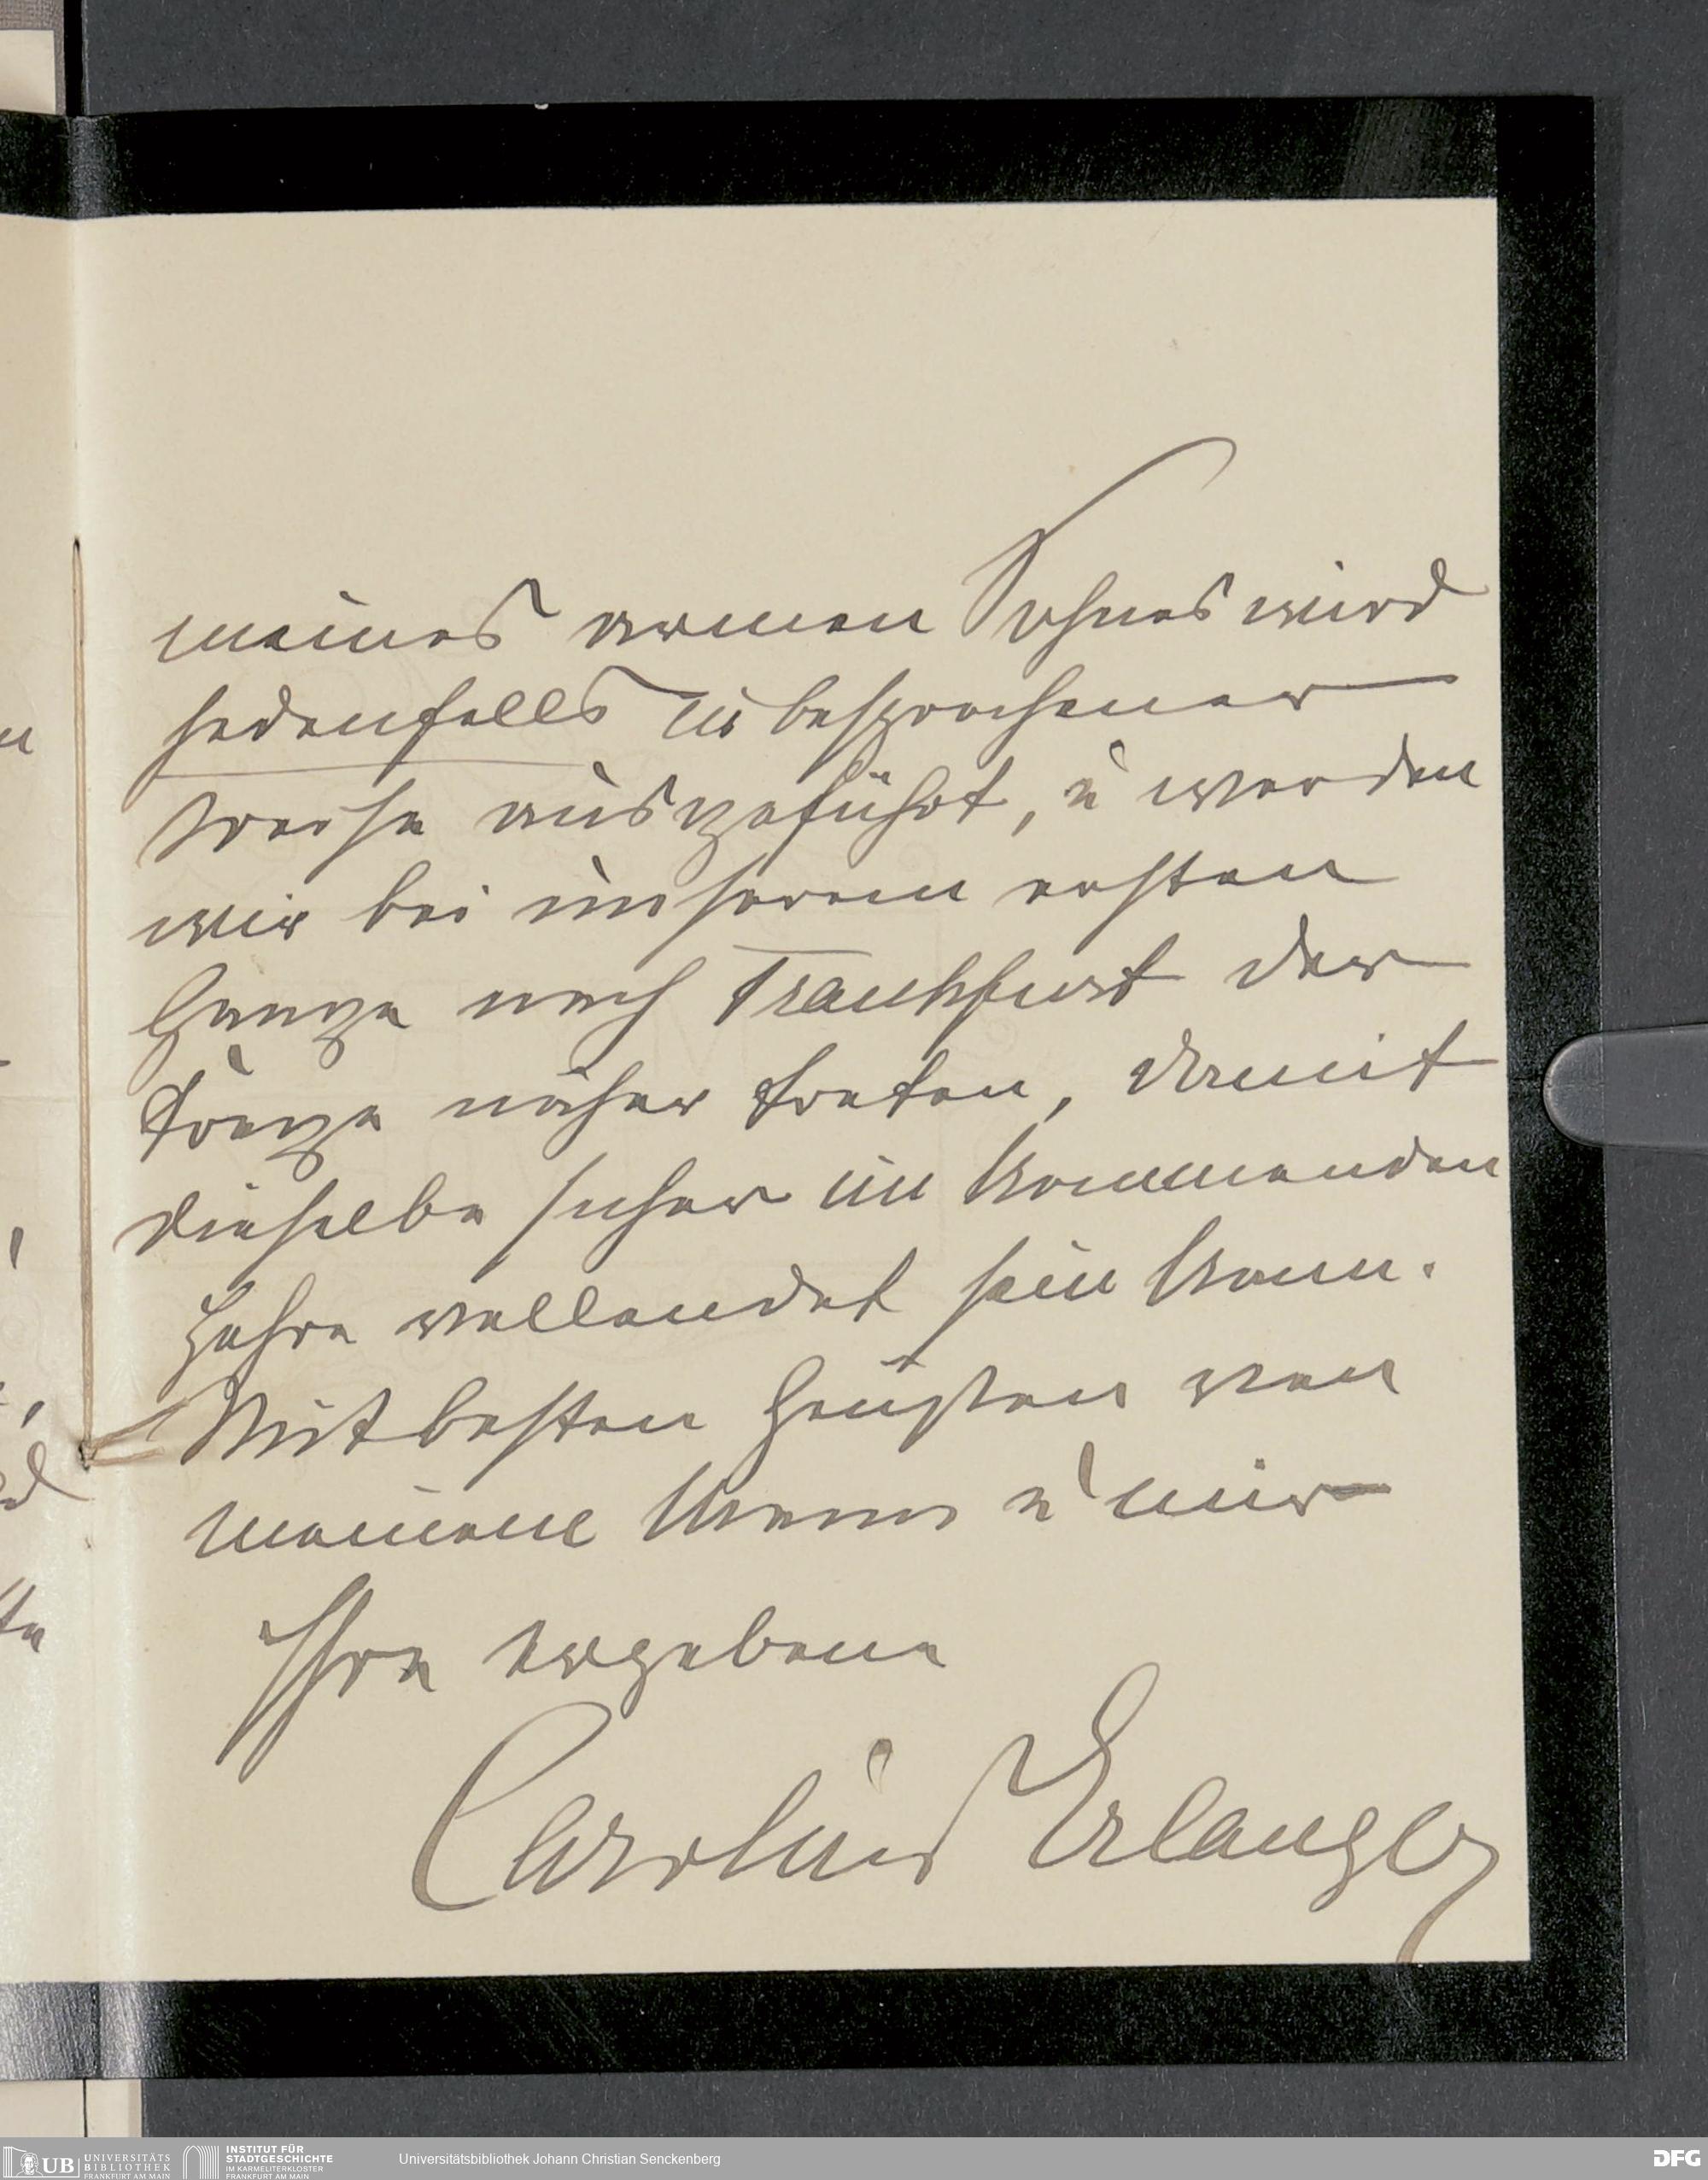 meines armen Sohnes wird
jedenfalls in besprochener
Weise ausgeführt, u werden
wir bei unserem ersten
Gange nach Frankfurt der
Frage näher treten, damit
dieselbe sicher im kommenden
Jahre vollendet sein kann.
Mit besten Grüßen von
meinem Mann u mir
Ihre ergebene
Caroline Erlanger
UB UNIVERSITÄTS
BIBLIOTHEK
FRANKFURT AM MAIN
INSTITUT FÜR
STADTGESCHICHTE
IM KARMELITERKLOSTER
FRANKFURT AM MAIN
Universitätsbibliothek Johann Christian Senckenberg
DFG